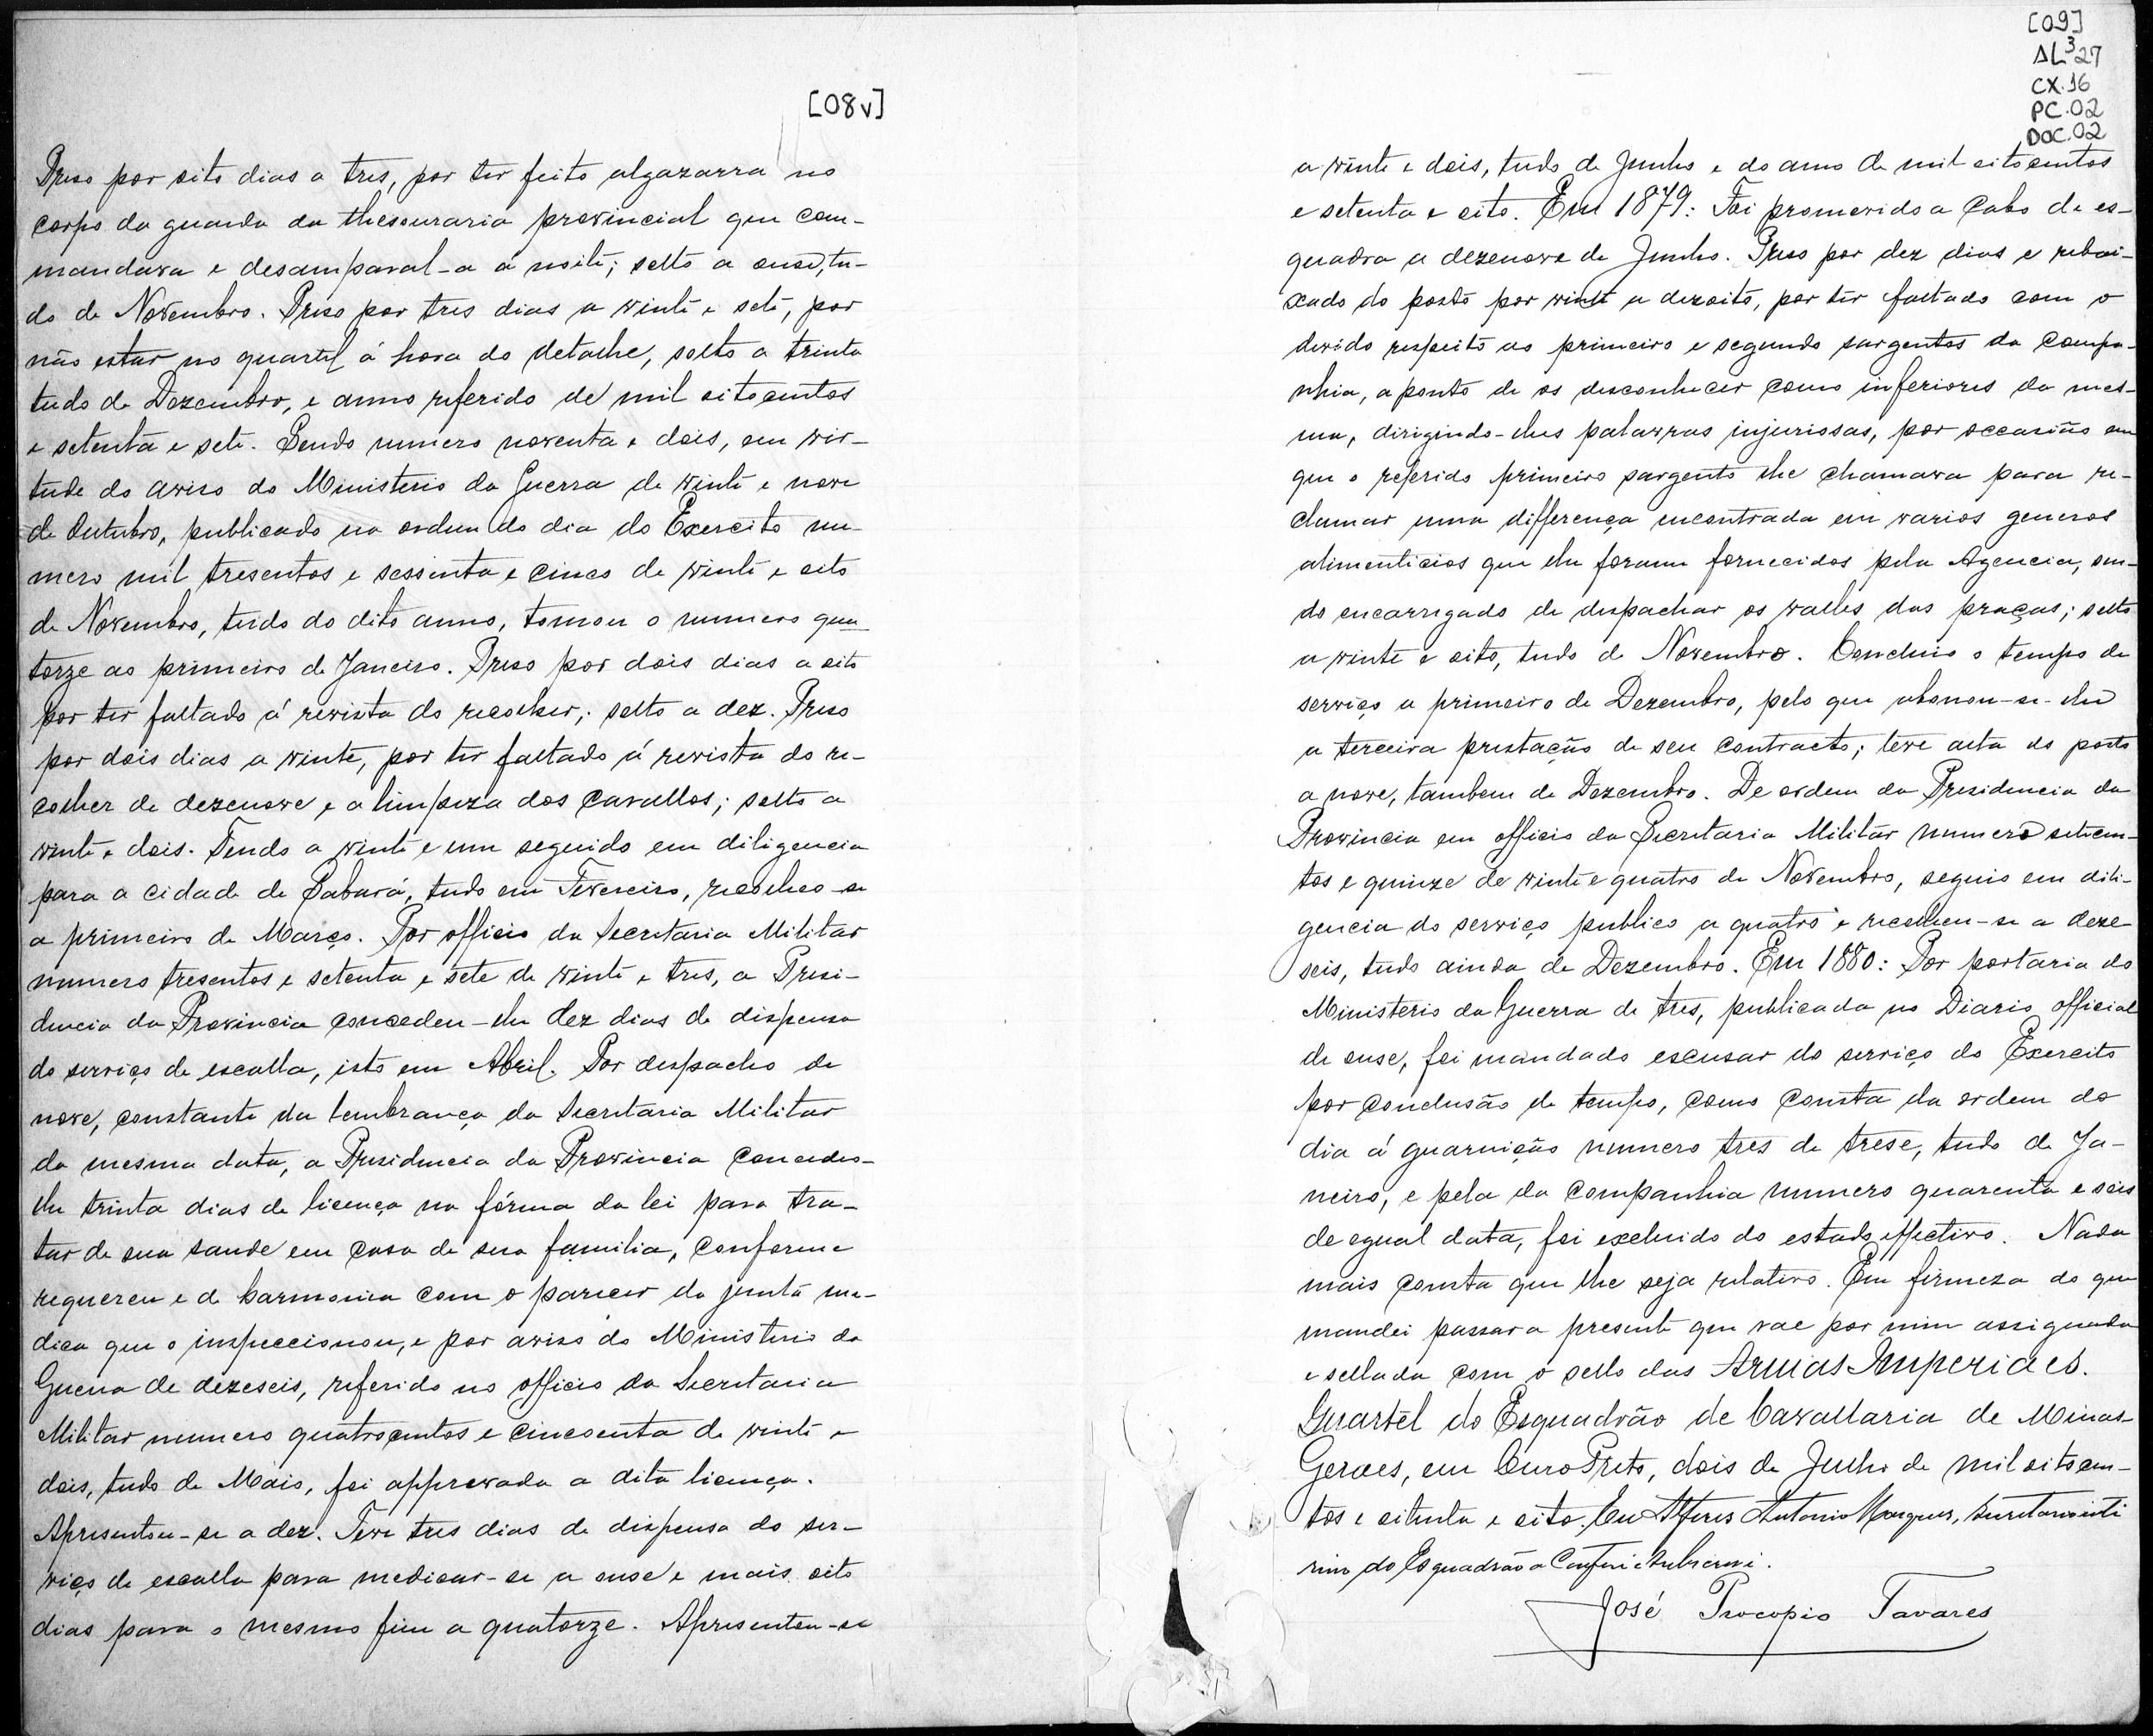 [08v]
Preso por oito dias a tres, por ter feito algazarra no
corpo da guarda da thesouraria provincial que com-
mandava e desamparal-a á noite; solto a onse, tu-
do de Novembro. Preso por tres dias a vinte e sete, por
não estar no quartel á hora do detalhe, solto a trinta
tudo de Dezembro, e anno referido de mil oitocentos
e setenta e sete. Sendo numero noventa e dois, em vir-
tude do aviso do Ministerio da Guerra de vinte e nove
de Outubro, publicado na ordem do dia do Exercito nu-
mero mil tresentos e sessenta e cinco de vinte e oito
de Novembro, tudo do dito anno, tomou o numero qua
torze ao primeiro de Janeiro. Preso por dois dias a oito
por ter faltado á revista do recolher; solto a dez. Preso
por dois dias a vinte, por ter faltado á revista do re-
colher de dezenove e a limpeza dos cavallos; solto a
vinte e dois. Tendo a vinte e um seguido em diligencia
para a cidade de Sabará, tudo em Fevereiro, recolheo-se
a primeiro de Março. Por officio da Secretaria Militar
numero tresentos e setenta e sete de vinte e tres, a Presi-
dencia da Provincia concedeu-lhe dez dias de dispensa
do serviço de escalla, isto em Abril. Por despacho de
nove, constante da lembrança da Secretaria Militar
da mesma data, a Presidencia da Provincia concedeo-
lhe trinta dias de licença na fórma da lei para tra-
tar de sua saude em casa de sua familia, conforme
requereu e de harmonia com o parecer da junta me-
dica que o inspeccionou, e por aviso do Ministerio da
Guerra de dezeseis, referido no officio da Secretaria
Militar numero quatrocentos e cincoenta de vinte e
dois, tudo de Maio, foi approvada a dita licença.
Apresentou-se a dez. Teve tres dias de dispensa do ser-
viço de escalla para medicar-se a onse e mais oito
dias para o mesmo fim a quatorze. Apresentou-se
[09]
AL³27
CX.16
PC.02
DOC.02
a vinte e dois, tudo de Junho e do anno de mil oitocentos
e setenta e oito. Em 1879: Foi promovido a Cabo de es-
quadra a dezenove de Junho. Preso por dez dias e rebai-
xado do posto por vinte a dezoito, por ter faltado com o
devido respeito ao primeiro e segundo sargentos da compa-
nhia, a ponto de os desconhecer como inferiores da mes-
ma, dirigindo-lhes palavras injuriosas, por occasião em
que o referido primeiro sargento lhe chamava para re-
clamar uma differença encontrada em varios generos
alimenticios que lhe foram fornecidos pela Agencia, sen-
do encarregado de despachar os valles das praças; solto
a vinte e oito, tudo de Novembro. Concluio o tempo de
serviço a primeiro de Dezembro, pelo que abonou-se-lhe
a terceira prestação de seu contracto; teve alta do posto
a nove, tambem de Dezembro. De ordem da Presidencia da
Provincia em officio da Secretaria Militar numero setecen-
tos e quinze de vinte e quatro de Novembro, seguio em dili-
gencia do serviço publico a quatro e recolheu-se a deze-
seis, tudo ainda de Dezembro. Em 1880: Por portaria do
Ministerio da Guerra de tres, publicada no Diario official
de onse, foi mandado escusar do serviço do Exercito
por conclusão de tempo, como consta da ordem do
dia á guarnição numero tres de trese, tudo de Ja-
neiro, e pela da companhia numero quarenta e seis
de egual data, foi excluido do estado effectivo. Nada
mais consta que lhe seja relativo. Em firmeza do que
mandei passar a presente que vae por mim assignada
e sellada com o sello das Armas Imperiaes.
Quartel do Esquadrão de Cavallaria de Minas
Geraes, em Ouro Preto, dois de Julho de mil oitocen-
tos e oitenta e oito. Eu Alferes Antonio Marques, Secretario inte
rino do Esquadrão a Conferi e subscrevi.
José Procopio Tavares